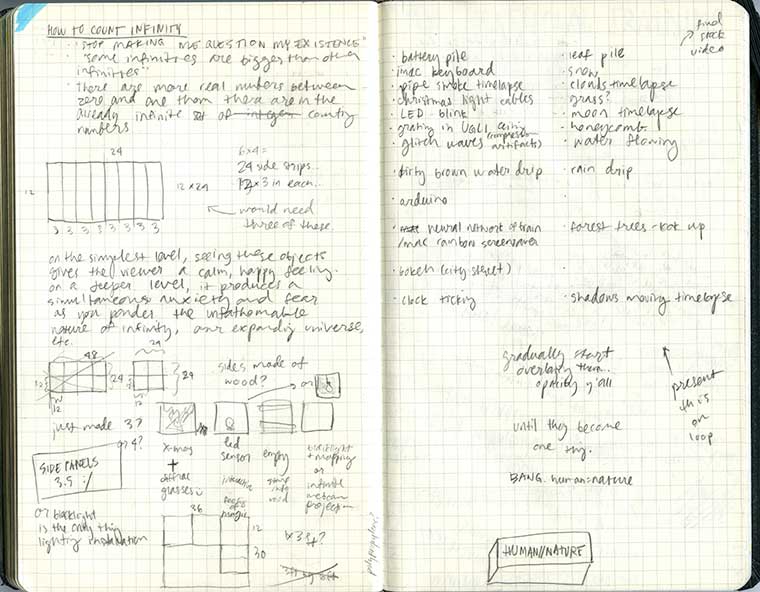 HOW TO COUNT INFINITY
· "STOP MAKING ME QUESTION MY EXISTENCE"
· "some infinities are bigger than other
infinities"
· There are more real numbers between
zero and one than there are in the
already infinite set of integers country
numbers
24
12
3 3 3 3 3 3 3 3
12 x 24
6x4=
24 side strips...
12x3 in each...
would need
three of these.
on the simplest level, seeing these objects
gives the viewer a calm, happy feeling.
on a deeper level, it produces a
simultaneous anxiety and fear
as you ponder the unfathomable
nature of infinity, our expanding universe,
etc.
48
12
24
12
24
12
24
12
sides made of
wood?
or
just made 3?
or 4?
x-mas
+
diffrac
glasses
led
sensor
interactive
empty
stare
into
void
backlight
+ mapping
or
infinite
webcam
projection
SIDE PANELS
3.5 :/
or backlight
is the only thing
lighting installation
36
12
30
4 x 3 ft?
find
video
· battery pile
· imac keyboard
· pipe smoke timelapse
· christmas light cables
· LED blink
· grating in UGLI ceiling
· glitch waves (compression
artifacts)
· dirty brown water drip
· arduino
· neural network of train
/mac rainbow screensaver
· bokeh (city street)
· clock ticking
· leaf pile
· snow
· clouds timelapse
· grass?
· moon timelapse
· honeycomb
· water flowing
· rain drip
·
· forest trees - look up
·
· shadows moving timelapse
gradually start
overlaying them...
opacity y'all
until they become
one thing.
BANG. human=nature
present
this
on
loop
HUMAN//NATURE